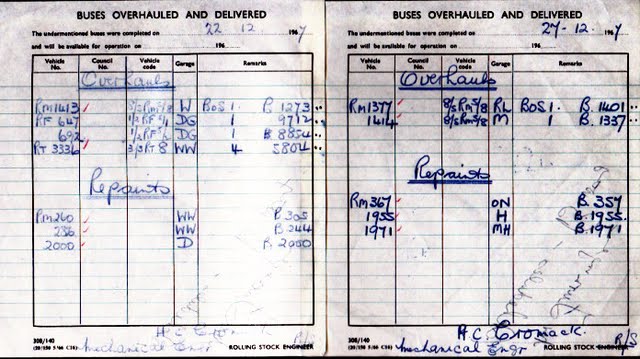 BUSES OVERHAULED AND DELIVERED
The undermentioned buses were completed on 22 12 1967
and will be available for operation on 196
Vehicle No. Council No. Vehicle code Garage Remarks
Overhauls
RM1413 8/5Rm5/8 W BOS 1. B 1273
RF 647 1/2 RF 5/1 DG 1 9712
692 1/2RF5/1 DG 1 B 8854
RT 3336 3/3RT8 WW 4 5804
Repaints
RM260 WW B 305
236 WW B 244
2000 D B. 2000
Mechanical Engr
ROLLING STOCK ENGINEER
308/140
(20/150 5/66 C28)
BUSES OVERHAULED AND DELIVERED
The undermentioned buses were completed on 27-12. 1967
and will be available for operation on 196
Vehicle No. Council No. Vehicle code Garage Remarks
Overhauls
RM1377 8/5Rm5/8 RL BOS 1. B. 1401
1414 8/5Rm5/8 M 1 B. 1337
Repaints
RM367 ON B. 357
1955 H B. 1955.
1971 MH B. 1971
H.C Cromack.
Mechanical Engr R/S
ROLLING STOCK ENGINEER
308/140
(20/150 5/66 C28)